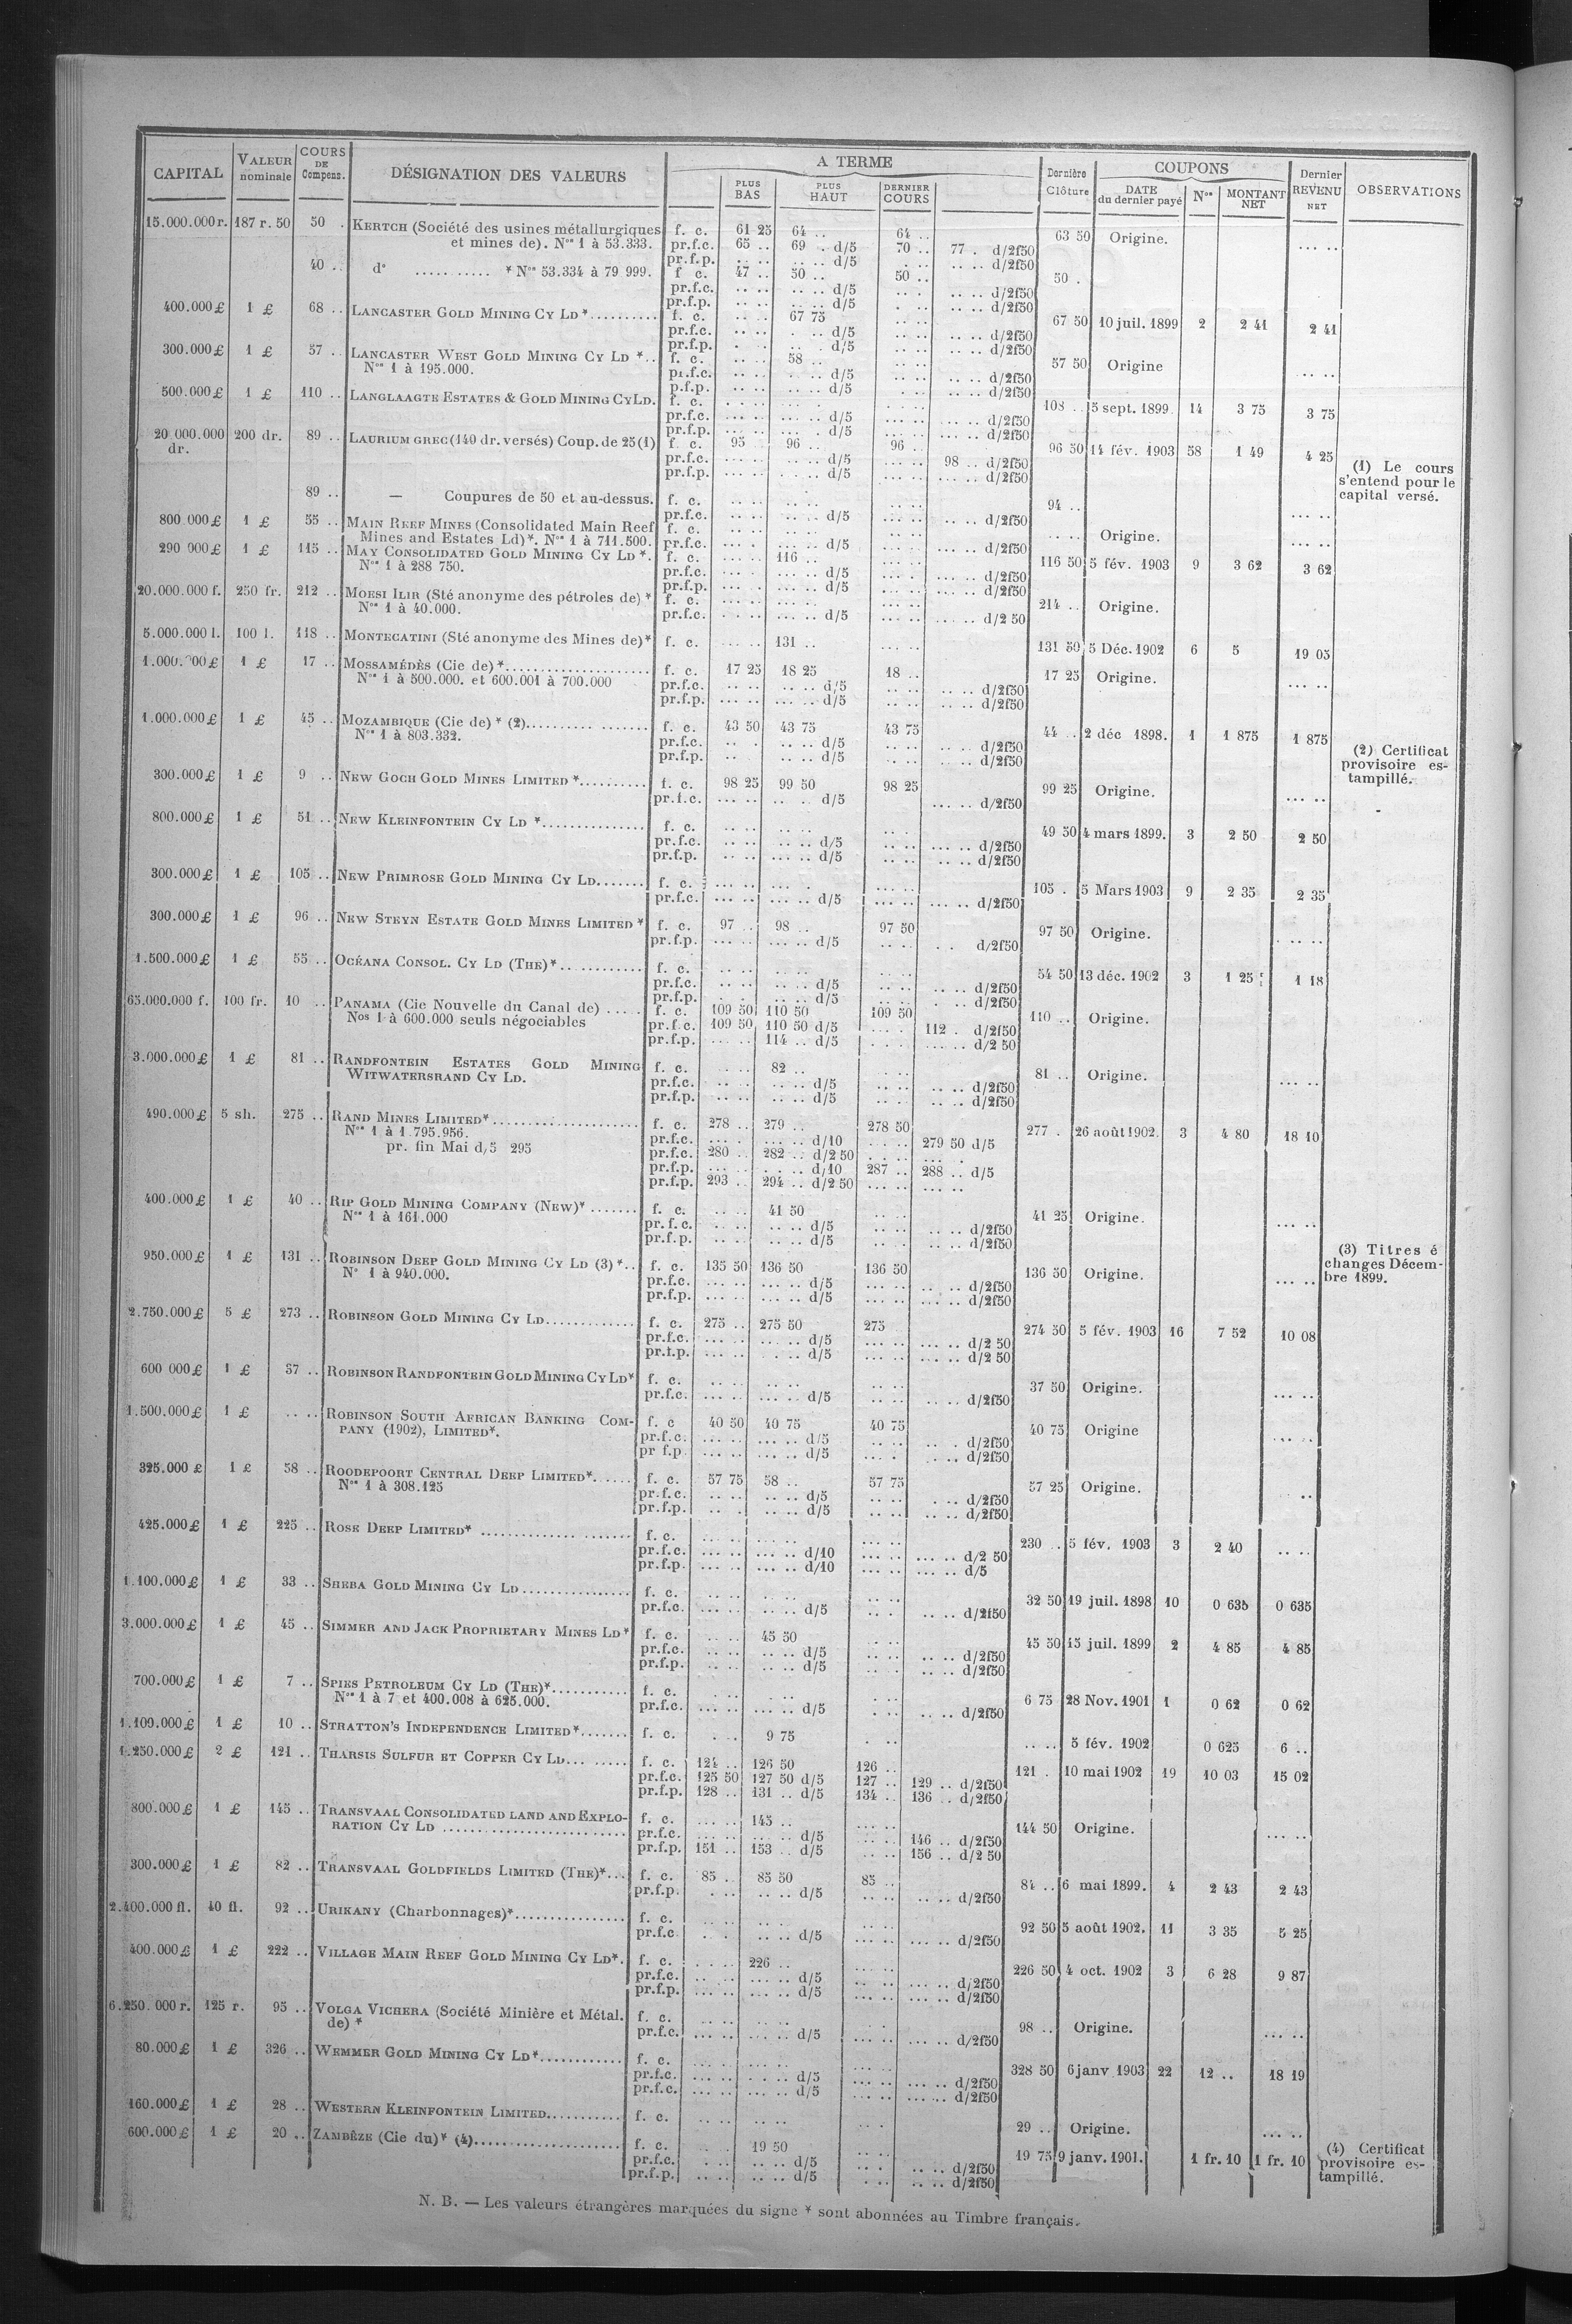 CAPITAL VALEUR nominale COURS DE Compens. DÉSIGNATION DES VALEURS A TERME PLUS BAS PLUS HAUT DERNIER COURS Dernière Clôture COUPONS DATE du dernier payé Nos MONTANT NET Dernier REVENU NET OBSERVATIONS
15.000.000 r. 187 r. 50 50 . KERTCH (Société des usines métallurgiques f. c. 61 25 64 .. 64 .. 63 50 Origine. ... ..
et mines de). Nos 1 à 53.333. pr.f.c. 65 .. 69 . d/5 70 .. 77 . d/2f50
pr.f.p. .. .. .. .. d/5 .. .. d/2f50
40 .. do ........... * Nos 53.334 à 79 999. f c. 47 .. 50 .. 50 .. 50 .
pr.f.c. .. .. .. .. d/5 .. .. d/2f50
pr.f.p. .. .. .. .. d/5 .. .. d/2f50
400.000 £ 1 £ 68 .. LANCASTER GOLD MINING CY LD *.......... f. c. .. .. 67 75 67 50 10 juil. 1899 2 2 41 2 41
pr.f.c. .. .. . .. d/5 .. .. d/2f50
pr.f.p. d/5 .. .. d/2f50
300.000 £ 1 £ 57 .. LANCASTER WEST GOLD MINING CY LD *.. f. c. 58 .. 57 50 Origine .. ..
Nos 1 à 195.000. pr.f.c. .. .. d/5 .. .. d/2f50
p.f.p. .. .. d/5 .. .. d/2f50
500.000 £ 1 £ 110 .. LANGLAAGTE ESTATES & GOLD MINING CY LD. f. c. 108 .. 5 sept. 1899 14 3 75 3 75
pr.f.c. ... .. d/5 ... .. d/2f50
pr.f.p. ... .. d/5 ... .. d/2f50
20 000.000 dr. 200 dr. 89 .. LAURIUM GREC (140 dr. versés) Coup. de 25 (1) f. c. 95 96 .. 96 .. 96 50 14 fév. 1903 58 1 49 4 25 (1) Le cours
pr.f.c. ... .. d/5 98 .. d/2f50 s'entend pour le
pr.f.p. ... .. d/5 d/2f50 capital versé.
89 .. — Coupures de 50 et au-dessus. f. c. .. .. 94 .. ... ..
pr.f.c. .. .. d/5 .. .. d/2f50
800 000 £ 1 £ 55 .. MAIN REEF MINES (Consolidated Main Reef f. c. .. .. Origine. ... ..
Mines and Estates Ld)*. Nos 1 à 711.500. pr.f.c. ... .. d/5 ... .. d/2f50
290 000 £ 1 £ 115 .. MAY CONSOLIDATED GOLD MINING CY LD *. f. c. 116 .. 116 50 5 fév. 1903 9 3 62 3 62
Nos 1 à 288 750. pr.f.c. ... .. d/5 ... .. d/2f50
pr.f.p. ... .. d/5 ... .. d/2f50
20.000.000 f. 250 fr. 212 .. MOESI ILIR (Sté anonyme des pétroles de) * f. c. 214 .. Origine.
Nos 1 à 40.000. pr.f.c. ... .. d/5 d/2 50
5.000.000 l. 100 l. 118 .. MONTECATINI (Sté anonyme des Mines de)* f. c. 131 .. 131 50 5 Déc. 1902 6 5 19 05
1 £ 17 .. MOSSAMÉDÈS (Cie de) *..................... f. c. 17 25 18 25 18 .. 17 25 Origine. ... ..
Nos 1 à 500.000. et 600.001 à 700.000 pr.f.c. .. .. d/5 .. .. d/2f50
pr.f.p. ... .. d/5 .. .. d/2f50
1.000.000 £ 1 £ 45 .. MOZAMBIQUE (Cie de) * (2).......... ....... f. c. 43 50 43 75 43 75 44 .. 2 déc 1898. 1 1 875 1 875
Nos 1 à 803.332. pr.f.c. .. .. d/5 .. .. d/2f50 (2) Certificat
pr.f.p. .. .. d/5 .. .. d/2f50 provisoire es-
300.000 £ 1 £ 9 .. NEW GOCH GOLD MINES LIMITED *.......... f. c. 98 25 99 50 98 25 99 25 Origine. ... .. tampillé.
pr.f.c. ... .. d/5 ... .. d/2f50
800.000 £ 1 £ 51 .. NEW KLEINFONTEIN CY LD *............... f. c. 49 50 4 mars 1899. 3 2 50 2 50
pr.f.c. .. .. d/5 ... .. d/2f50
pr.f.p. .. .. d/5 .. .. d/2f50
300.000 £ 1 £ 105 .. NEW PRIMROSE GOLD MINING CY LD....... f. c. 105 . 5 Mars 1903 9 2 35 2 35
pr.f.c. ... .. d/5 ... .. d/2f50
300.000 £ 1 £ 96 .. NEW STEYN ESTATE GOLD MINES LIMITED * f. c. 97 .. 98 .. 97 50 97 50 Origine. .. ..
pr.f.p. ... .. d/5 d/2f50
1.500.000 £ 1 £ 55 .. OCÉANA CONSOL. CY LD (THE)*............ f. c. 54 50 13 déc. 1902 3 1 25 1 18
pr.f.c. .. .. d/5 .. .. d/2f50
pr.f.p. .. .. d/5 .. .. d/2f50
65.000.000 f. 100 fr. 10 .. PANAMA (Cie Nouvelle du Canal de) ..... f. c. 109 50 110 50 109 50 110 .. Origine.
Nos 1 à 600.000 seuls négociables pr.f.c. 109 50 110 50 d/5 112 . d/2f50
pr.f.p. 114 .. d/5 d/2 50
3.000.000 £ 1 £ 81 .. RANDFONTEIN ESTATES GOLD MINING f. c. 82 .. 81 .. Origine. ... ..
WITWATERSRAND CY LD. pr.f.c. .. .. d/5 .. .. d/2f50
pr.f.p. .. .. d/5 .. .. d/2f50
490.000 £ 5 sh. 275 .. RAND MINES LIMITED*........................ f. c. 278 .. 279 .. 278 50 277 . 26 août 1902. 3 4 80 18 10
Nos 1 à 1.795.956. pr.f.c. ... .. d/10 279 50 d/5
pr. fin Mai d/5 295 pr.f.c. 280 .. 282 .. d/2 50
pr.f.p. d/10 287 .. 288 .. d/5
pr.f.p. 293 .. 294 .. d/2 50 ... ..
400.000 £ 1 £ 40 .. RIP GOLD MINING COMPANY (NEW)* ....... f. c. 41 50 41 25 Origine. ... ..
Nos 1 à 161.000 pr. f. c. .. .. d/5 .. .. d/2f50
pr.f.p. .. .. d/5 .. .. d/2f50
950.000 £ 1 £ 131 .. ROBINSON DEEP GOLD MINING CY LD (3) *.. f. c. 135 50 136 50 136 50 136 50 Origine. ... .. (3) Titres é
No 1 à 940.000. pr.f.c. ... .. d/5 ... .. d/2f50 changes Décem-
pr.f.p. ... .. d/5 ... .. d/2f50 bre 1899.
2.750.000 £ 5 £ 273 .. ROBINSON GOLD MINING CY LD............. f. c. 275 .. 275 50 275 274 50 5 fév. 1903 16 7 52 10 08
pr.f.c. ... .. d/5 ... .. d/2 50
pr.f.p. d/5 ... .. d/2 50
600 000 £ 1 £ 37 .. ROBINSON RANDFONTEIN GOLD MINING CY LD* f. c. 37 50 Origine. ... ..
pr.f.c. ... .. d/5 .. .. d/2f50
1.500.000 £ 1 £ .. .. ROBINSON SOUTH AFRICAN BANKING COM- f. c 40 50 40 75 40 75 40 75 Origine ... ..
PANY (1902), LIMITED*. pr.f.c. ... .. d/5 d/2f50
pr f.p. ... .. d/5 .. .. d/2f50
325.000 £ 1 £ 58 .. ROODEPOORT CENTRAL DEEP LIMITED*...... f. c. 57 75 58 .. 57 75 57 25 Origine. ..
Nos 1 à 308.125 pr.f.c. .. .. d/5 d/2f50
pr.f.p. .. .. d/5 .. .. d/2f50
425.000 £ 1 £ 225 .. ROSE DEEP LIMITED* ...................... f. c. 230 .. 5 fév. 1903 3 2 40 .. ..
pr.f.c. ... .. d/10 ... .. d/2 50
pr.f.p. ... .. d/10 ... .. d/5
1.100.000 £ 1 £ 33 .. SHEBA GOLD MINING CY LD ................ f. c. 32 50 19 juil. 1898 10 0 635 0 635
pr.f.c. .. .. d/5 .. .. d/2f50
3.000.000 £ 1 £ 45 .. SIMMER AND JACK PROPRIETARY MINES LD* f. c. 45 50 45 50 15 juil. 1899 2 4 85 4 85
pr.f.c. .. .. d/5 d/2f50
pr.f.p. .. .. d/5 .. .. d/2f50
700.000 £ 1 £ 7 .. SPIES PETROLEUM CY LD (THE)*........... f. c. 6 75 28 Nov. 1901 1 0 62 0 62
Nos 1 à 7 et 400.008 à 625.000. pr.f.c. ... .. d/5 .. .. d/2f50
1.100.000 £ 1 £ 10 .. STRATTON'S INDEPENDENCE LIMITED*....... f. c. 9 75 .. .. 5 fév. 1902 0 625 6 ..
1.250.000 £ 2 £ 121 .. THARSIS SULFUR ET COPPER CY LD... ...... f. c. 124 .. 126 50 126 .. 121 . 10 mai 1902 19 10 03 15 02
pr.f.c. 125 50 127 50 d/5 127 .. 129 .. d/2f50
pr.f.p. 128 .. 131 .. d/5 134 .. 136 .. d/2f50
800.000 £ 1 £ 145 .. TRANSVAAL CONSOLIDATED LAND AND EXPLO- f. c. 145 .. 144 50 Origine. ... ..
RATION CY LD ........................... pr.f.c. ... .. d/5 146 .. d/2f50
pr.f.p. 151 .. 153 .. d/5 156 .. d/2 50
300.000 £ 1 £ 82 .. TRANSVAAL GOLDFIELDS LIMITED (THE)*... f. c. 85 .. 85 50 85 .. 84 .. 6 mai 1899. 4 2 43 2 43
pr.f.p. .. .. d/5 .. .. d/2f50
2.400.000 fl. 40 fl. 92 .. URIKANY (Charbonnages)*................ f. c. 92 50 5 août 1902. 11 3 35 5 25
pr.f.c .. .. d/5 ... .. d/2f50
400.000 £ 1 £ 222 .. VILLAGE MAIN REEF GOLD MINING CY LD*. f. c. 226 .. 226 50 4 oct. 1902 3 6 28 9 87
pr.f.c. ... .. d/5 ... .. d/2f50
pr.f.p. ... .. d/5 ... .. d/2f50
6.250.000 r. 125 r. 95 .. VOLGA VICHERA (Société Minière et Métal. f. c. 98 .. Origine. ... ..
de) * pr.f.c. ... .. d/5 ... .. d/2f50
80.000 £ 1 £ 326 .. WEMMER GOLD MINING CY LD*............ f. c. 328 50 6 janv 1903 22 12 .. 18 19
pr.f.c. d/5 ... .. d/2f50
pr.f.c. ... .. d/5 ... .. d/2f50
160.000 £ 1 £ 28 .. WESTERN KLEINFONTEIN LIMITED........... f. c. 29 .. Origine. ... ..
600.000 £ 1 £ 20 .. ZAMBÈZE (Cie du)* (4)...................... f. c. 19 50 19 75 9 janv. 1901. 1 fr. 10 1 fr. 10 (4) Certificat
pr.f.c. .. .. d/5 .. .. d/2f50 provisoire es-
pr.f.p. .. .. d/5 .. .. d/2f50 tampillé.
N. B. — Les valeurs étrangères marquées du signe * sont abonnées au Timbre français.